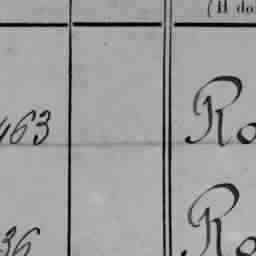 (Il do
463 Ro
36 Ro